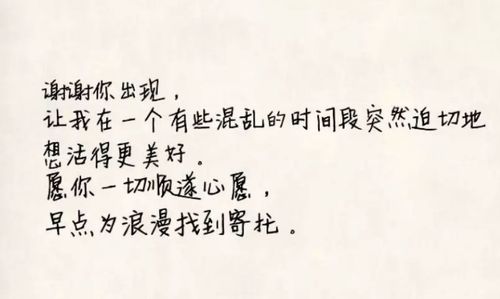 谢谢你出现，
让我在一个有些混乱的时间段突然迫切地
想活得更美好。
愿你一切顺遂心愿，
早点为浪漫找到寄托。